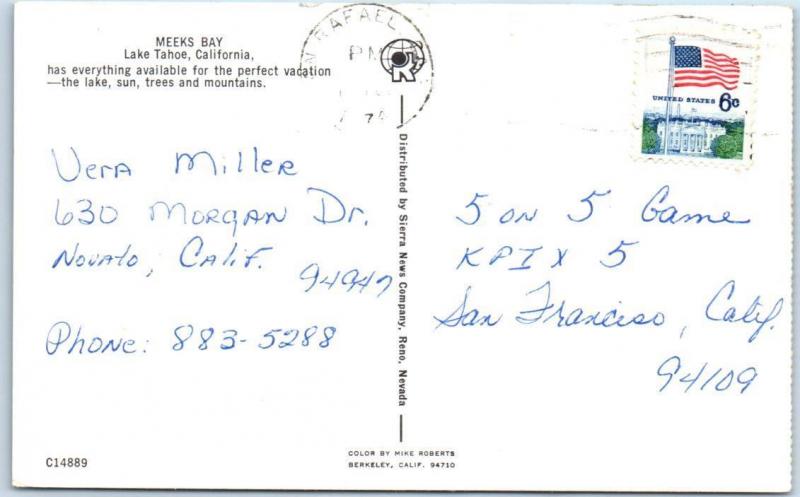 MEEKS BAY
Lake Tahoe, California,
has everything available for the perfect vacation
—the lake, sun, trees and mountains.
Vera Miller
630 Morgan Dr.
Novato, Calif.
94947
Phone: 883-5288
C14889
Distributed by Sierra News Company, Reno, Nevada
COLOR BY MIKE ROBERTS
BERKELEY, CALIF. 94710
N RAFAEL
PM
UNITED STATES 6c
5 on 5 Game
KPIX 5
San Franciso, Calif.
94109